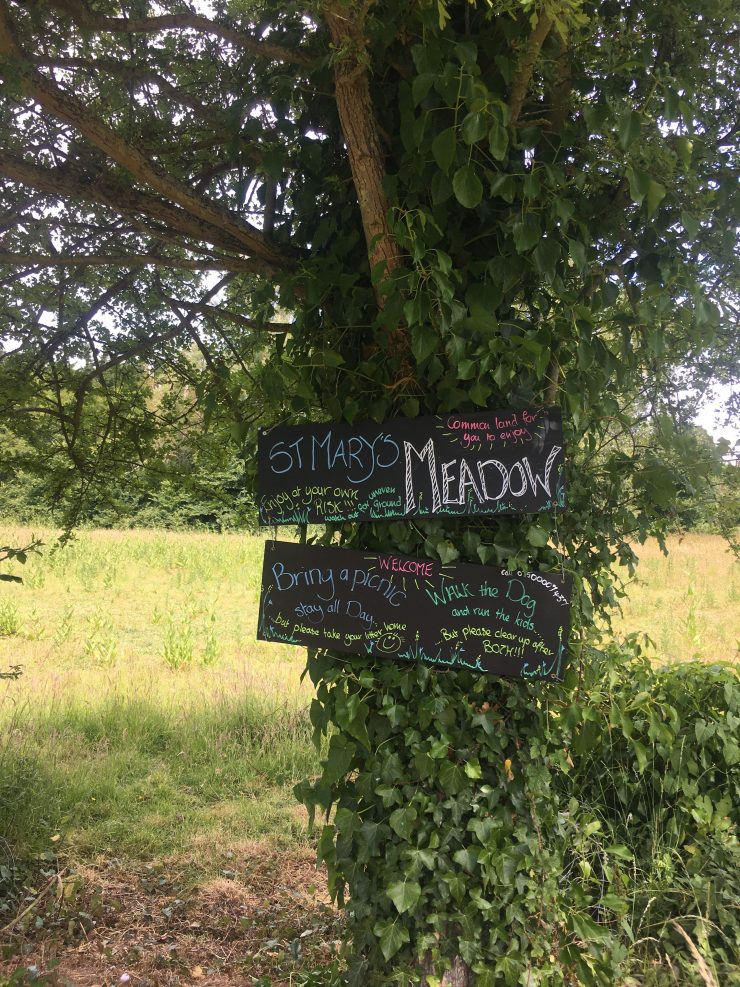 ST MARY'S MEADOW
Common land for
you to enjoy
Enjoy at your own
RISK!!!
watch out for uneven
Ground
WELCOME
Bring a picnic
stay all Day...
...but please take your litter home
Walk the Dog
and run the kids...
But please clear up after
BOTH!!!
call